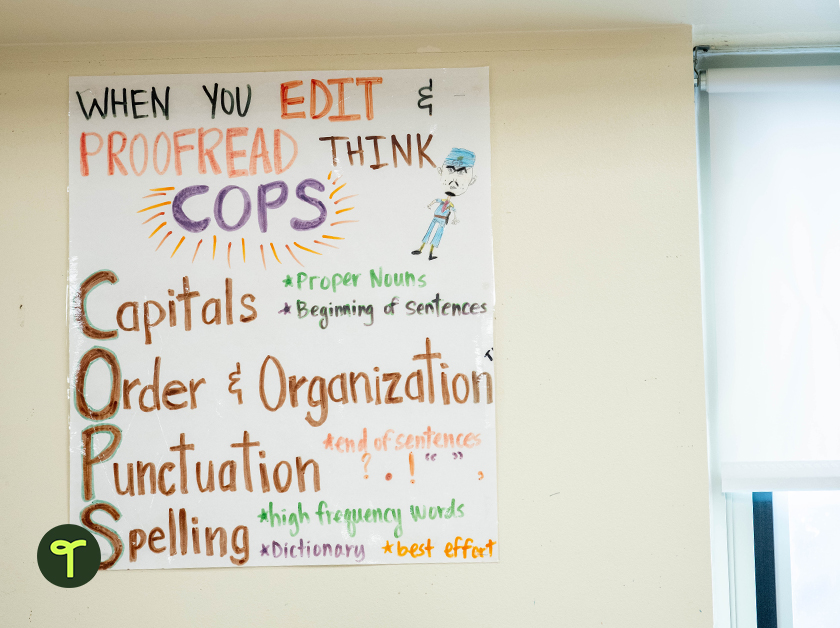 WHEN YOU EDIT &
PROOFREAD THINK
COPS
Capitals
*Proper Nouns
*Beginning of sentences
Order & Organization
Punctuation
*end of sentences
? . ! “ ” ,
Spelling
*high frequency words
*Dictionary *best effort